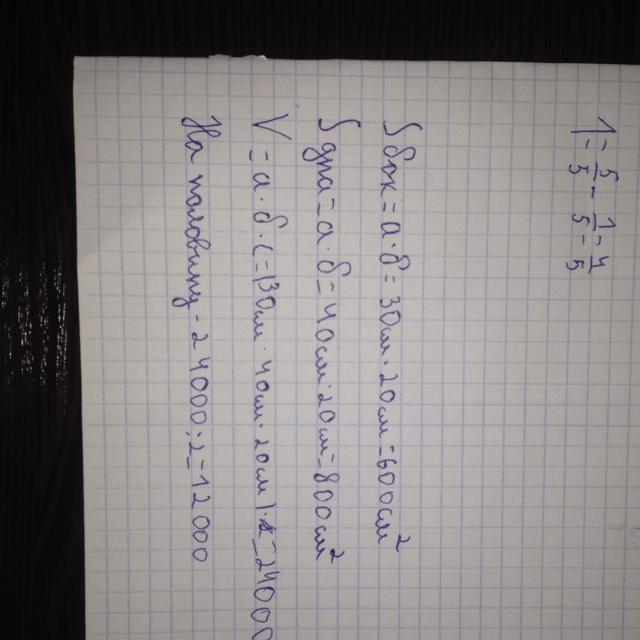 1 = 5/5 - 1/5 = 4/5
S бок = а · б = 30см · 20см = 600см²
S дна = а · б = 40см · 20см = 800см²
V = а · б · с = (30см · 40см · 20см) = 24000
На половину - 24000 : 2 = 12000